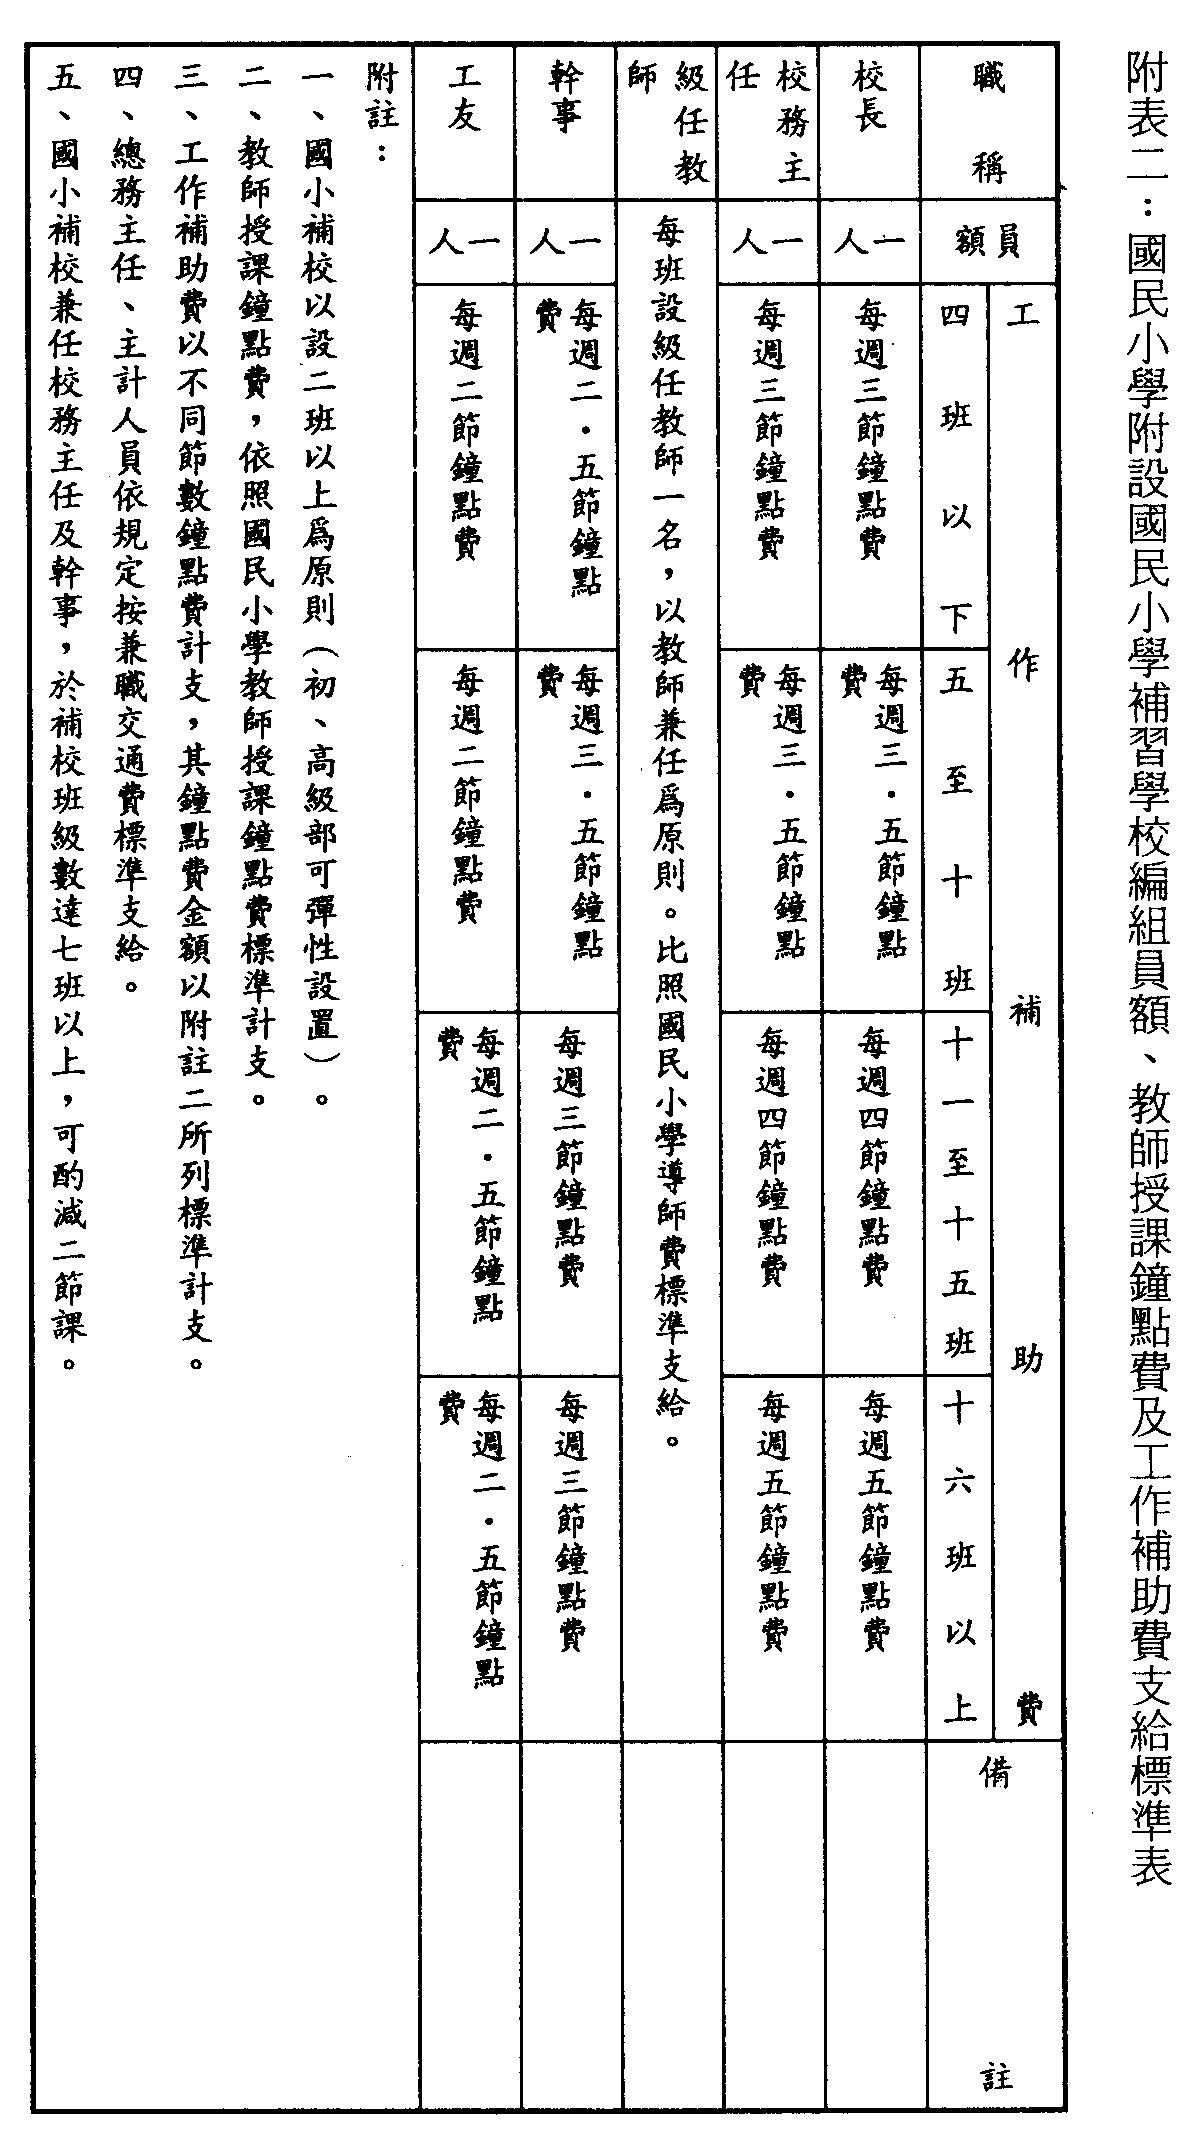 附表二：國民小學附設國民小學補習學校編組員額、教師授課鐘點費及工作補助費支給標準表
職稱
員額
工作補助費
四班以下
五至十班
十一至十五班
十六班以上
備註
校長
一人
每週三節鐘點費
每週三．五節鐘點
費
每週四節鐘點費
每週五節鐘點費
校務主
任
一人
每週三節鐘點費
每週三．五節鐘點
費
每週四節鐘點費
每週五節鐘點費
級任教
師
每班設級任教師一名，以教師兼任為原則。比照國民小學導師費標準支給。
幹事
一人
每週二．五節鐘點
費
每週三．五節鐘點
費
每週三節鐘點費
每週三節鐘點費
工友
一人
每週二節鐘點費
每週二節鐘點費
每週二．五節鐘點
費
每週二．五節鐘點
費
附註：
一、國小補校以設二班以上為原則（初、高級部可彈性設置）。
二、教師授課鐘點費，依照國民小學教師授課鐘點費標準計支。
三、工作補助費以不同節數鐘點費計支，其鐘點費金額以附註二所列標準計支。
四、總務主任、主計人員依規定按兼職交通費標準支給。
五、國小補校兼任校務主任及幹事，於補校班級數達七班以上，可酌減二節課。